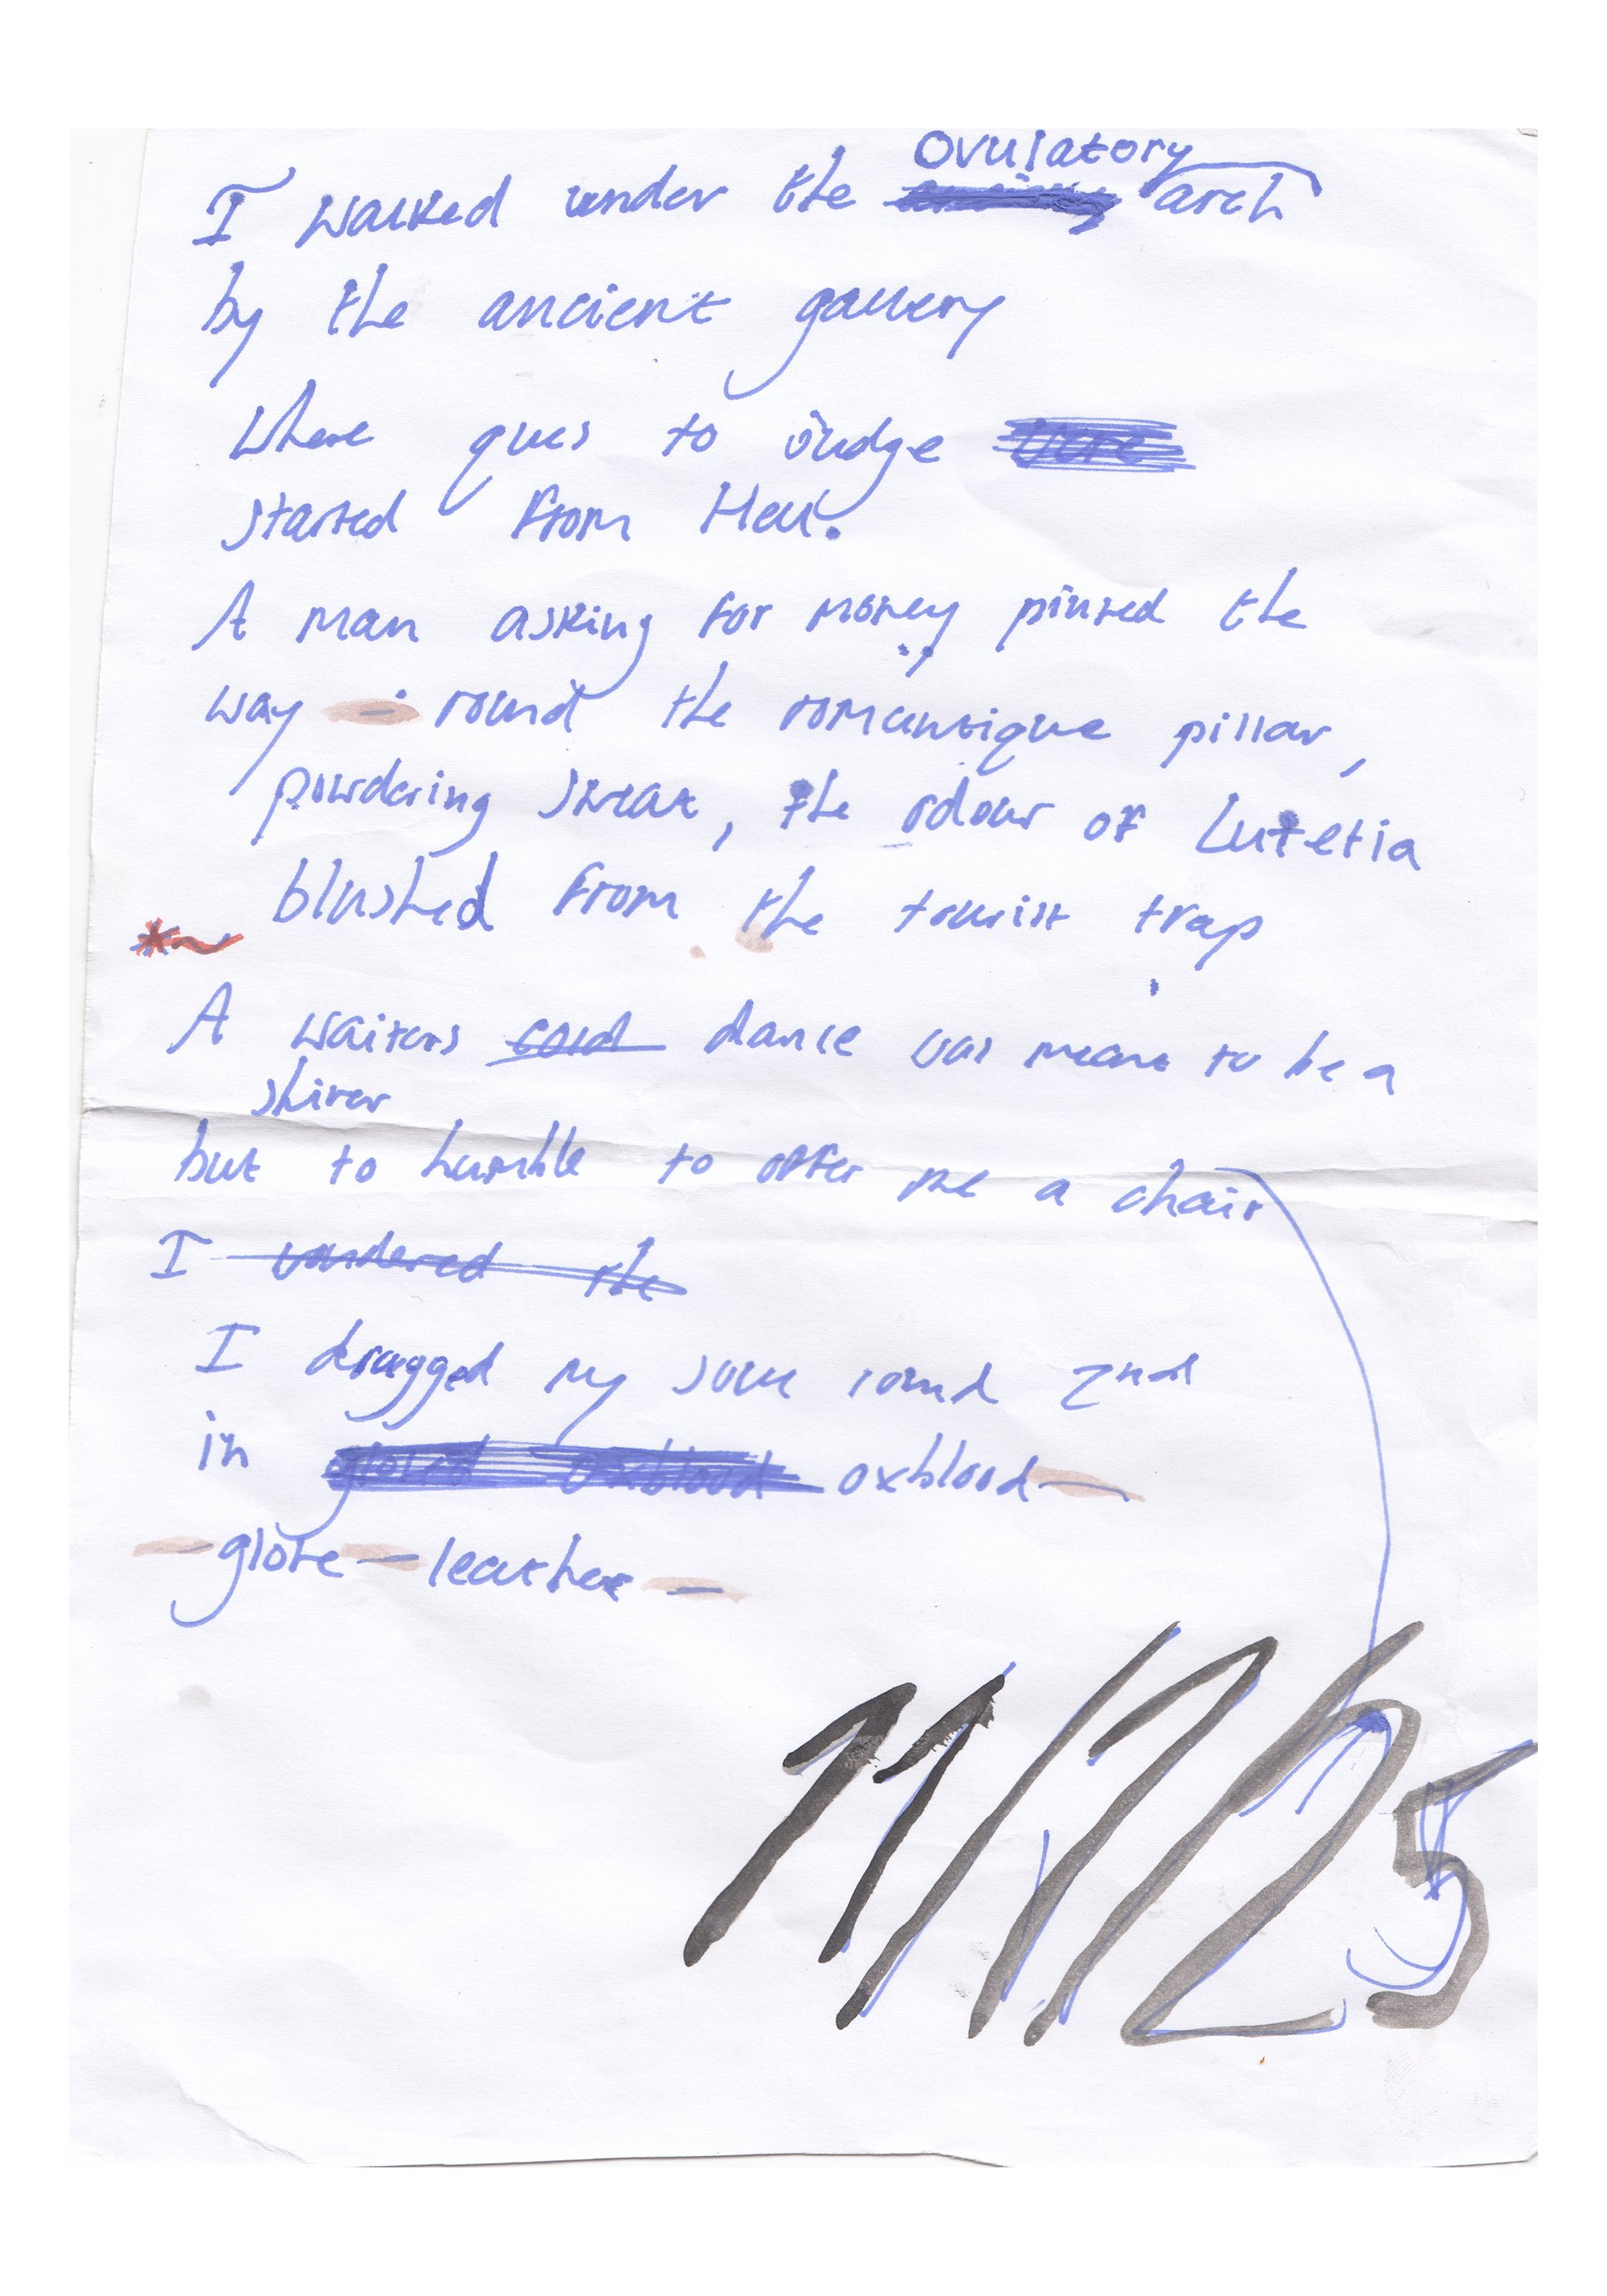 Ovulatory
I walked under the arch
by the ancient gallery
where ques to judge
started from Hell.
A man asking for money pinned the
way - round the romantique pillar,
powdering sweat, the odour of Lutetia
blushed from the tourist trap
A waiters cold dance was meant to be a
shiver
but to humble to offer me a chair
I wandered the
I dragged my soul round 2nd
in oxblood -
- glove - leather -